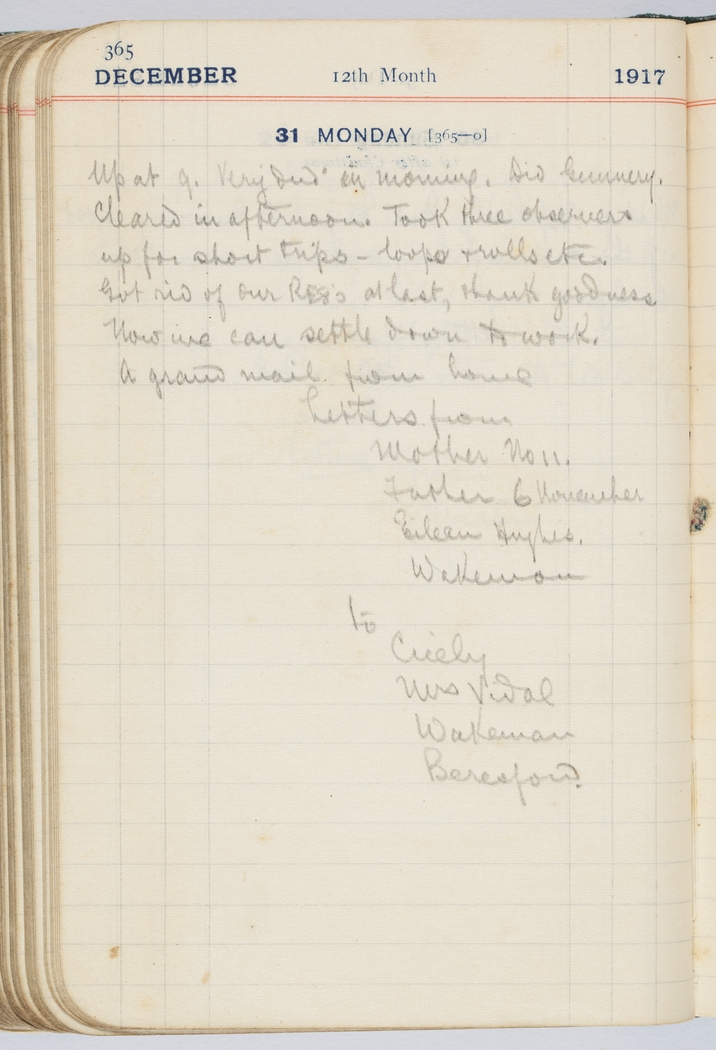 365
DECEMBER 12th Month 1917
31 MONDAY [365—0]
Up at 9. Very dud in morning. Did Gunnery.
Cleared in afternoon. Took three observers
up for short trips – loops + rolls etc.
Got rid of our RE8's at last, thank goodness
Now we can settle down to work.
A grand mail from home
Letters from
Mother No 11.
Father 6 November
Eileen Hughes.
Wakeman
to
Cicely
Mrs Vidal
Wakeman
Beresford.